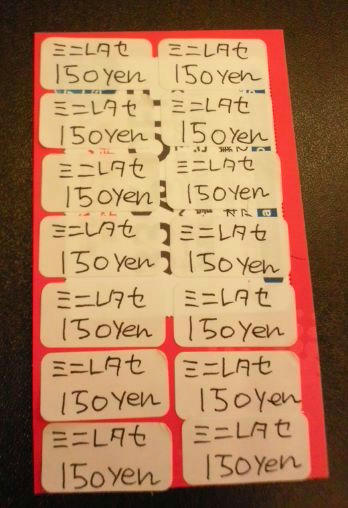 ミニレタセ
150yen
ミニレタセ
150yen
ミニレタセ
150yen
ミニレタセ
150yen
ミニレタセ
150yen
ミニレタセ
150yen
ミニレタセ
150yen
ミニレタセ
150yen
ミニレタセ
150yen
ミニレタセ
150yen
ミニレタセ
150yen
ミニレタセ
150yen
ミニレタセ
150yen
ミニレタセ
150yen